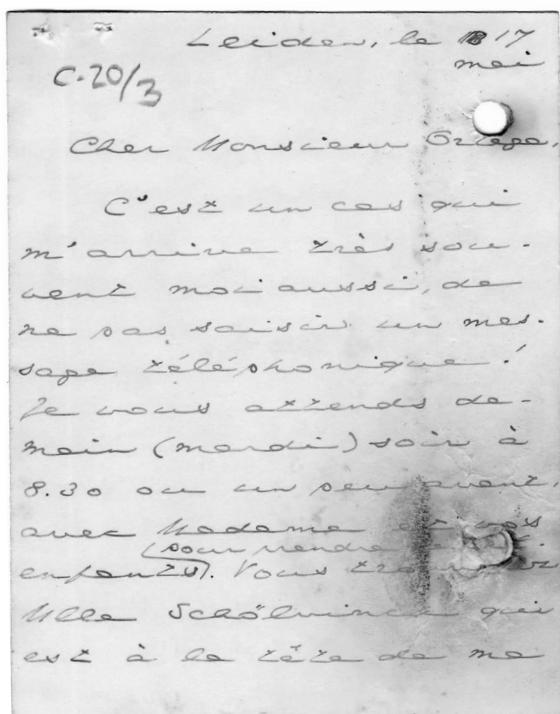 Leiden, le 17
mai
C-20/3
Cher Monsieur Ortega,
C'est un cas qui
m'arrive très sou-
vent moi aussi, de
ne pas saisir un mes-
sage téléphonique!
Je vous attends de-
main (mardi) soir à
8.30 ou un peu avant,
avec Madame et vos
(pour prendre
enfants). Vous
Mlle Schölvinck qui
est à la tête de ma